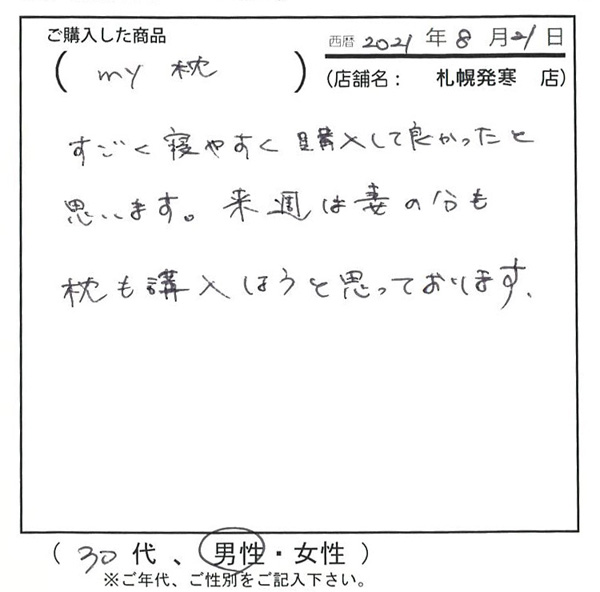 ご購入した商品
西暦 2021 年 8 月 21 日
( my 枕 )
(店舗名： 札幌発寒 店)
すごく寝やすく購入して良かったと
思います。来週は妻の分も
枕も講入しようと思っております。
( 30 代 、 男性・女性 )
※ご年代、ご性別をご記入下さい。